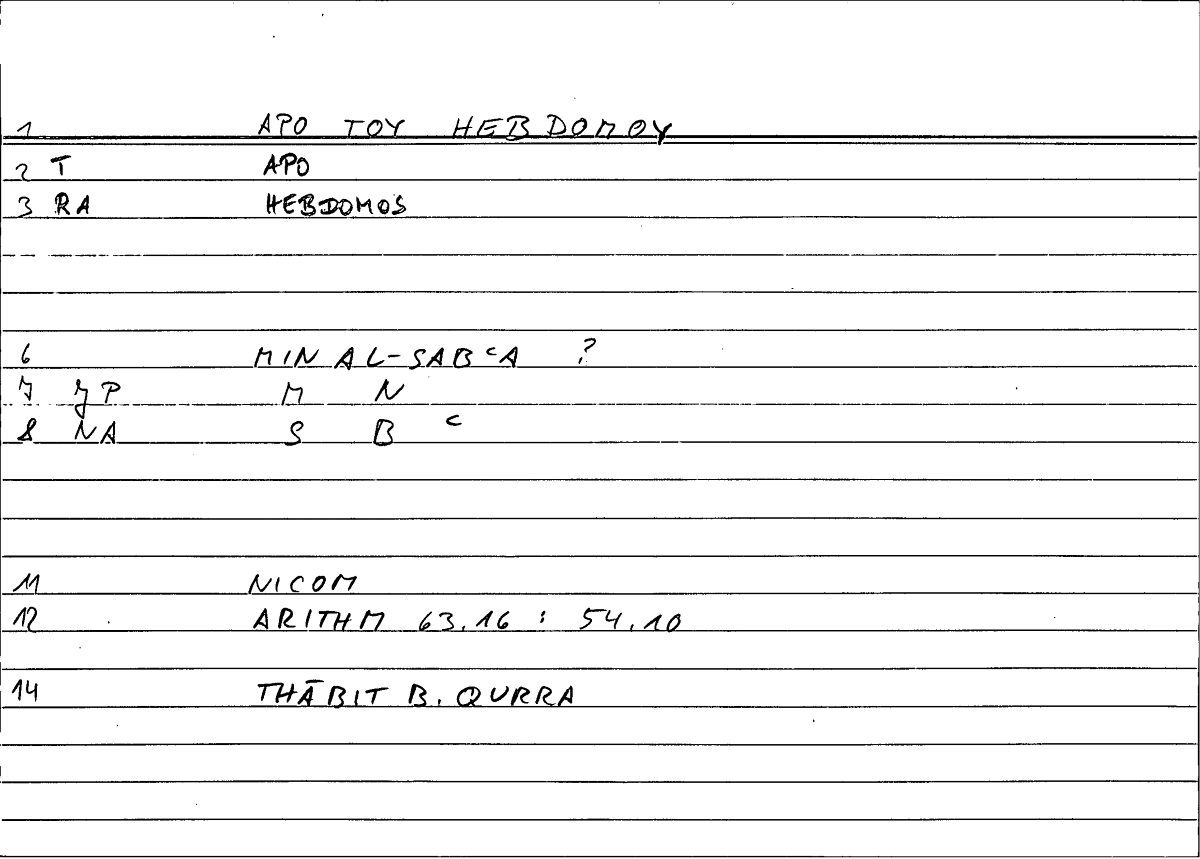 1 APO TOY HEBDOMOY
2 T APO
3 RA HEBDOMOS
6 MIN AL-SABᶜA ?
7 JP M N
8 NA S B ᶜ
11 NICOM
12 ARITHM 63.16 : 54.10
14 THĀBIT B. QURRA